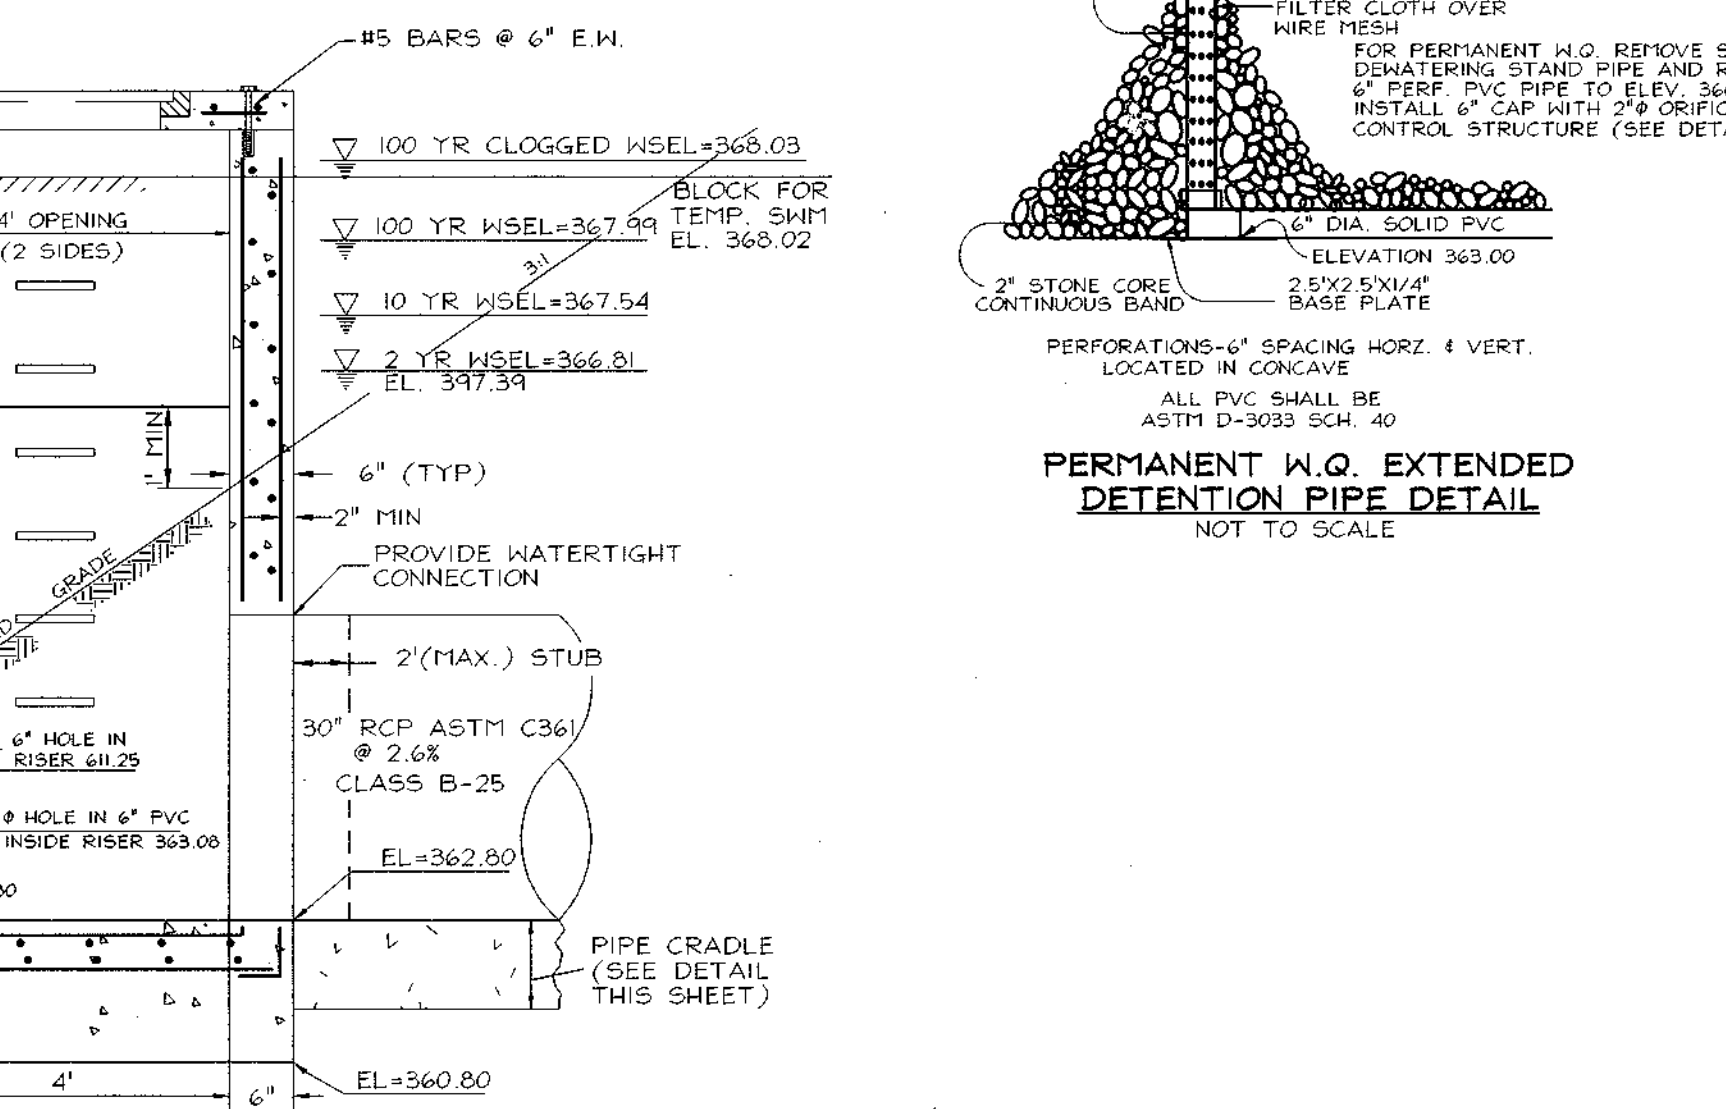 #5 BARS @ 6" E.W.
100 YR CLOGGED WSEL=368.03
BLOCK FOR
TEMP. SWM
EL. 368.02
4' OPENING
(2 SIDES)
100 YR WSEL=367.99
3:1
10 YR WSEL=367.54
2 YR WSEL=366.81
EL. 397.39
1' MIN
6" (TYP)
2" MIN
PROVIDE WATERTIGHT
CONNECTION
GRADE
2'(MAX.) STUB
30" RCP ASTM C361
@ 2.6%
CLASS B-25
6" HOLE IN
RISER 611.25
Φ HOLE IN 6" PVC
INSIDE RISER 363.08
EL=362.80
PIPE CRADLE
(SEE DETAIL
THIS SHEET)
EL=360.80
4'
6"
FILTER CLOTH OVER
WIRE MESH
FOR PERMANENT W.Q. REMOVE
DEWATERING STAND PIPE AND
6" PERF. PVC PIPE TO ELEV.
INSTALL 6" CAP WITH 2"Φ
CONTROL STRUCTURE (SEE
6" DIA. SOLID PVC
ELEVATION 363.00
2" STONE CORE
CONTINUOUS BAND
2.5'X2.5'X1/4"
BASE PLATE
PERFORATIONS-6" SPACING HORZ. & VERT.
LOCATED IN CONCAVE
ALL PVC SHALL BE
ASTM D-3033 SCH. 40
PERMANENT W.Q. EXTENDED
DETENTION PIPE DETAIL
NOT TO SCALE